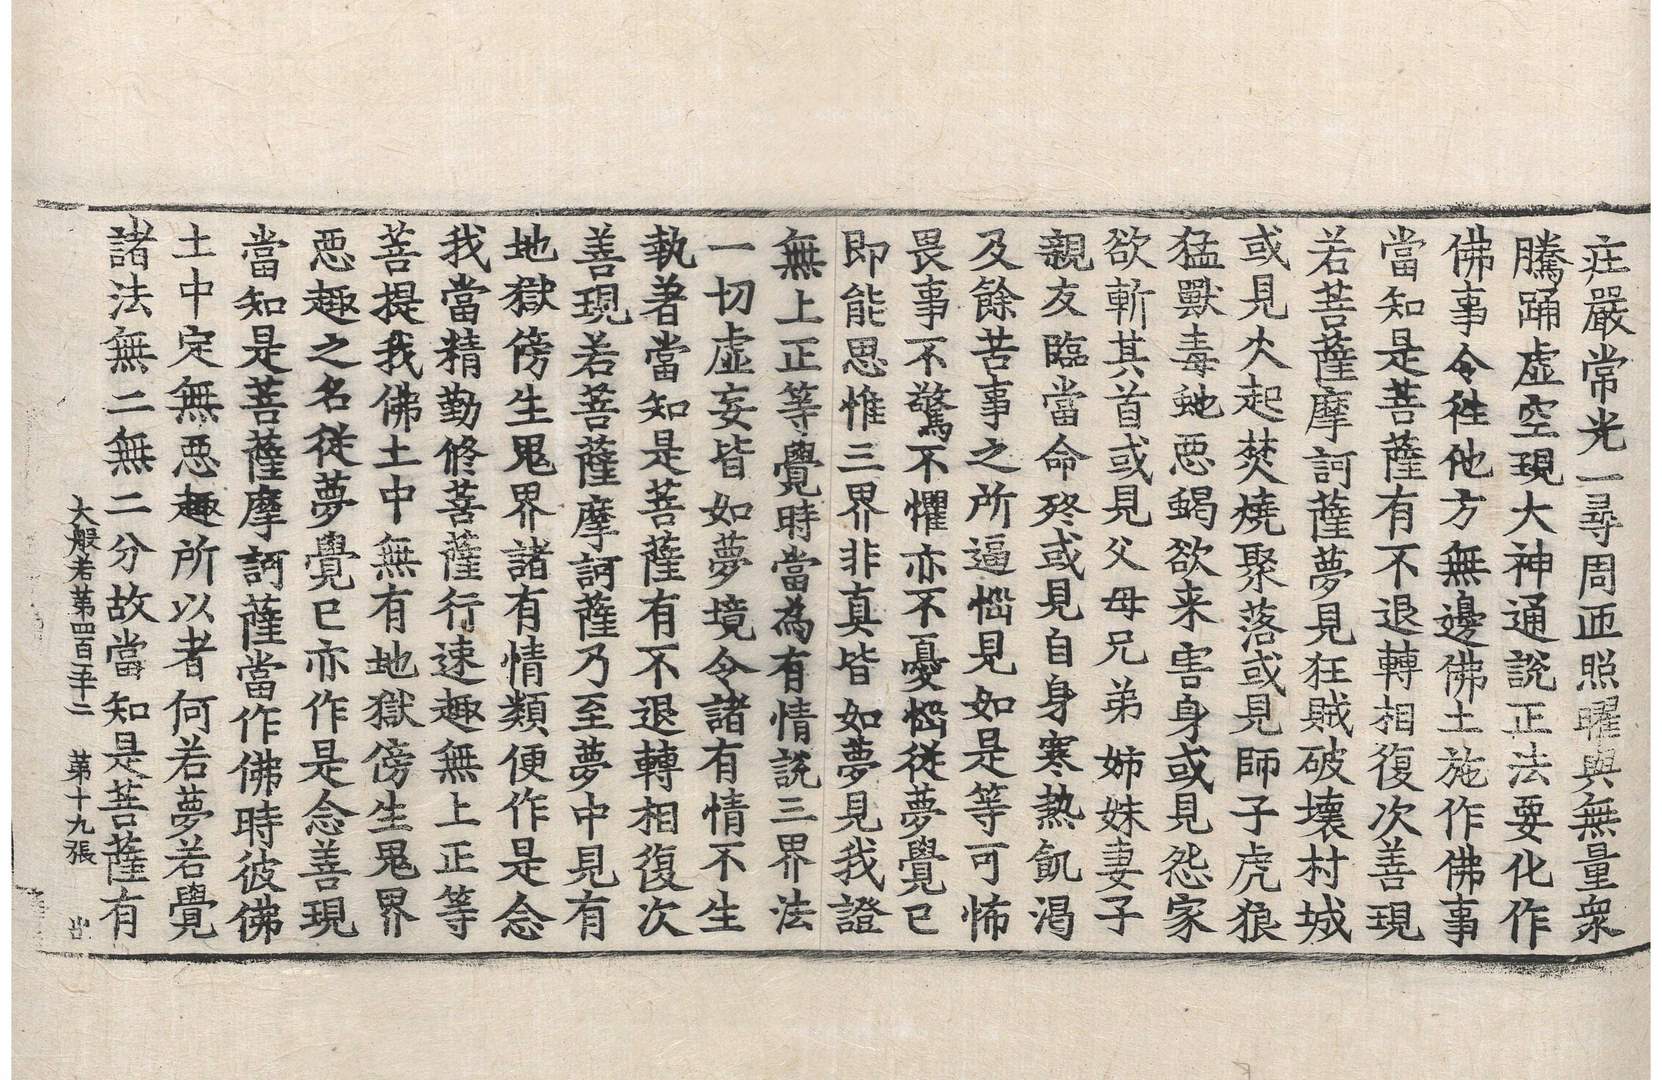 庄嚴常光一尋周匝照曜與無量衆
騰踊虛空現大神通說正法要化作
佛事令徃他方無邊佛土施作佛事
當知是菩薩有不退轉相復次善現
若菩薩摩訶薩夢見狂賊破壞村城
或見火起焚燒聚落或見師子虎狼
猛獸毒虵惡蝎欲来害身或見怨家
欲斬其首或見父母兄弟姊妹妻子
親友臨當命終或見自身寒熱飢渴
及餘苦事之所逼惱見如是等可怖
畏事不驚不懼亦不憂惱從夢覺已
即能思惟三界非真皆如夢見我證
無上正等覺時當為有情說三界法
一切虛妄皆如夢境令諸有情不生
執著當知是菩薩有不退轉相復次
善現若菩薩摩訶薩乃至夢中見有
地獄傍生鬼界諸有情類便作是念
我當精勤修菩薩行速趣無上正等
菩提我佛土中無有地獄傍生鬼界
惡趣之名從夢覺已亦作是念善現
當知是菩薩摩訶薩當作佛時彼佛
土中定無惡趣所以者何若夢若覺
諸法無二無二分故當知是菩薩有
大般若第四百五十二 第十九張